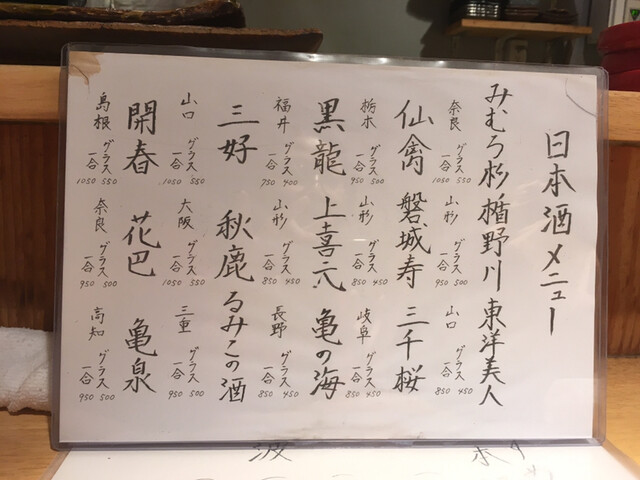 日本酒メニュー
みむろ杉 楯野川 東洋美人
奈良 グラス 550 山形 グラス 500 山口 グラス 450
一合 1050 一合 950 一合 850
仙禽 磐城寿 三千桜
栃木 グラス 500 山形 グラス 450 岐阜 グラス 450
一合 950 一合 850 一合 850
黒龍 上喜元 亀の海
福井 グラス 400 山形 グラス 450 長野 グラス 450
一合 750 一合 850 一合 850
三好 秋鹿 るみこの酒
山口 グラス 550 大阪 グラス 550 三重 グラス 500
一合 1050 一合 1050 一合 950
開春 花巴 亀泉
島根 グラス 550 奈良 グラス 500 高知 グラス 500
一合 1050 一合 950 一合 950